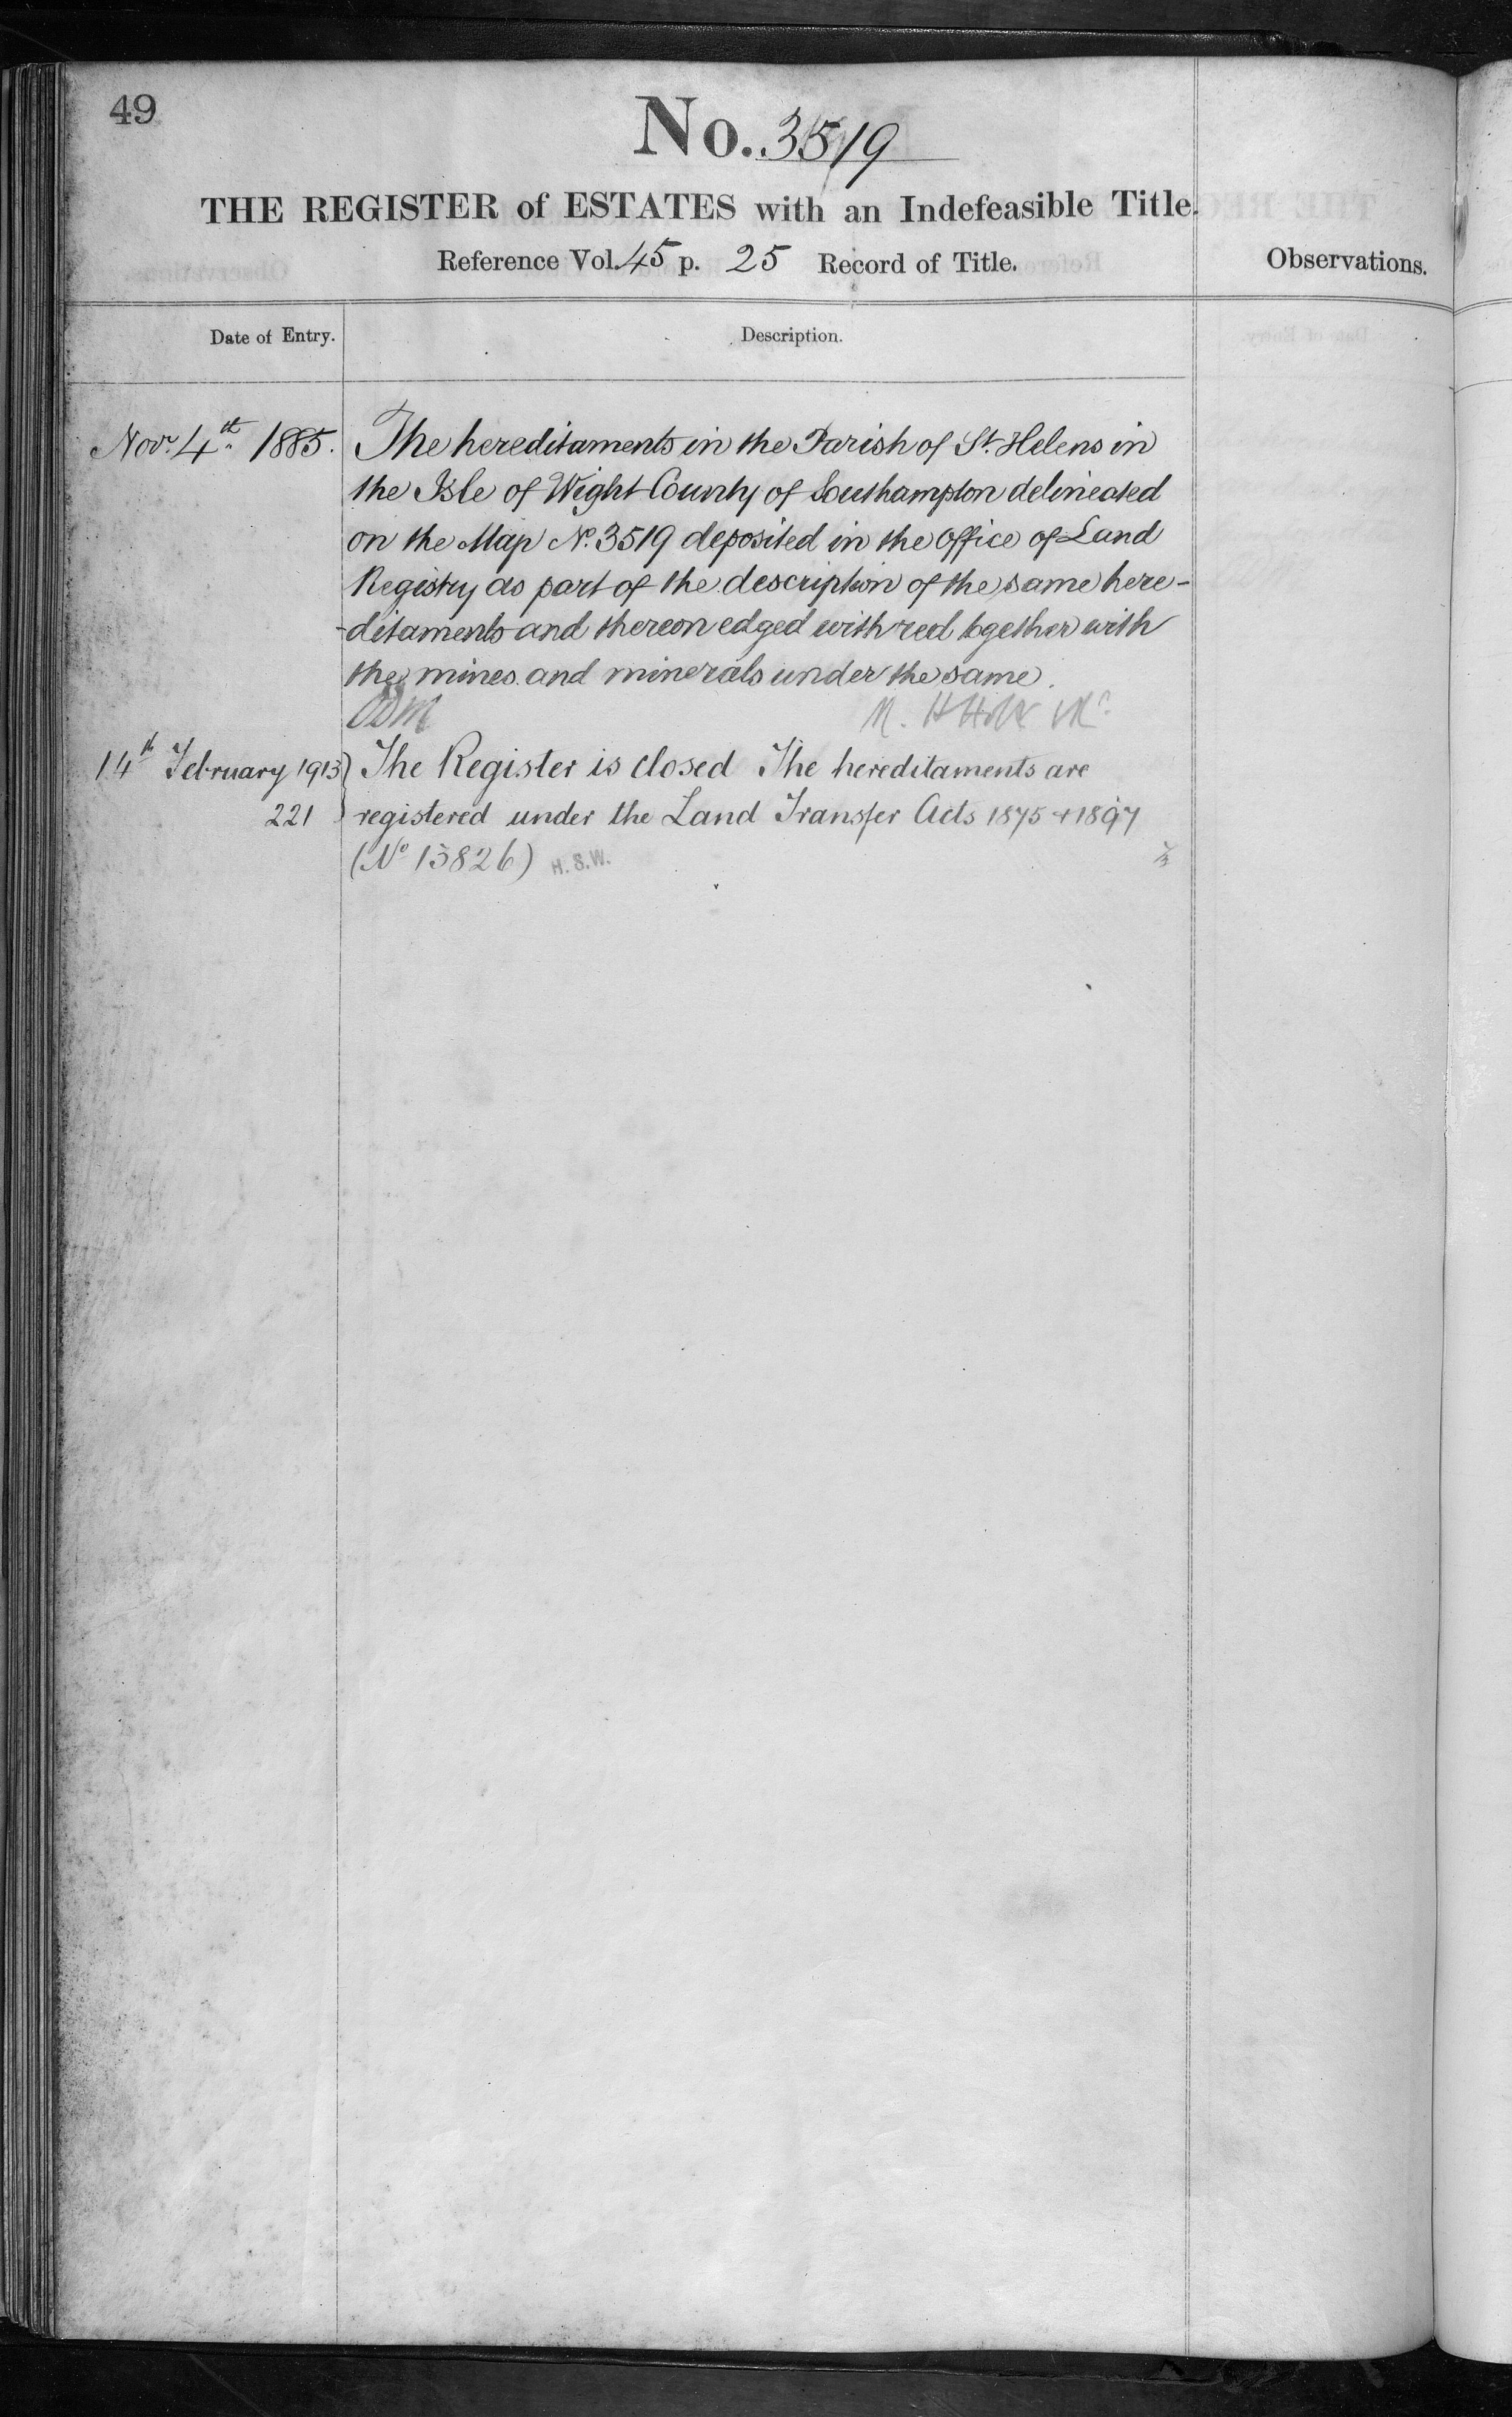 49
No. 3519
THE REGISTER of ESTATES with an Indefeasible Title.
Reference Vol. 45 p. 25 Record of Title.
Observations.
Date of Entry.
Description.
Novr. 4th. 1885.
The hereditaments in the Parish of St. Helens in
the Isle of Wight County of Southampton delineated
on the Map No. 3519 deposited in the Office of Land
Registry as part of the description of the same here-
-ditaments and thereon edged with red together with
the mines and minerals under the same.
14th February 1913
221
The Register is closed The hereditaments are
registered under the Land Transfer Acts 1875 + 1897
(No 15826) H.S.W.